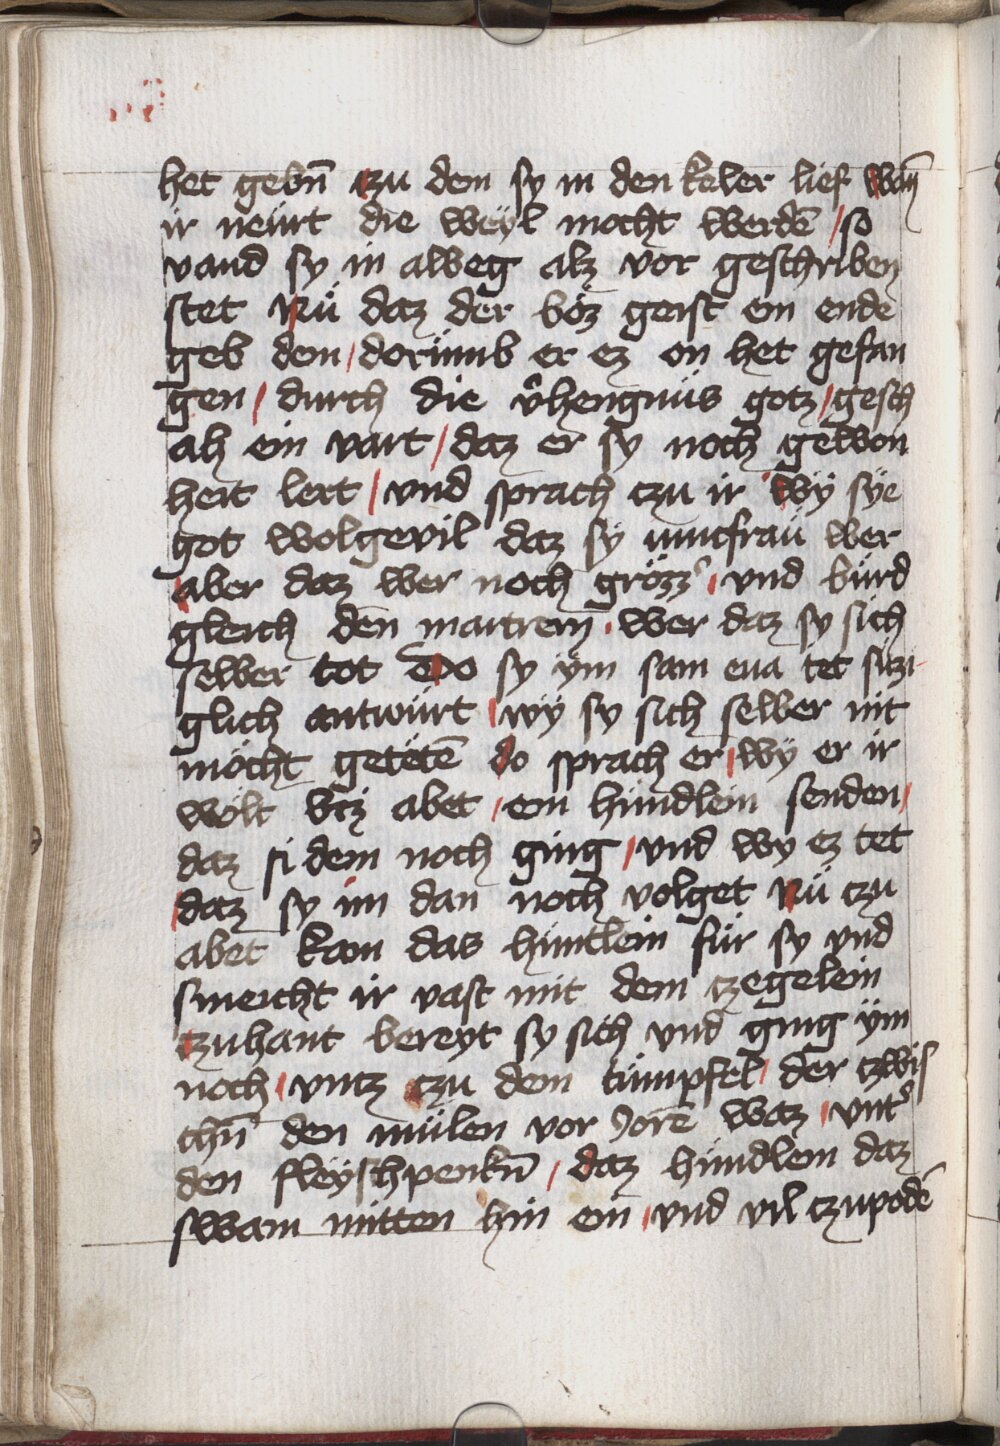 het gebn̄ czu dem sy in den keler lief wan̄
ir neürt die weÿl mocht werdē / so
vand sy in alweg alz vor geschriben
stet Nü daz der böz geist ein ende
geb dem / dorümb er ez on het gefan
gen / durch die v̂hengnüs gotz / gesch
ah ein vart / daz er sy noch gewon
heit lert / vnd sprach czu ir wÿ sÿe
got wolgevil daz sÿ iuncfraü wer
aber daz wer noch grözz᾽ / vnd bürd
gleich den martrern̄ . wer daz sy sich
selber tot Do sy ÿm sam eua tet
glich antwürt / wÿ sy sich selber nit
möcht getötē do sprach er / wÿ er ir
wölt biz abet / ein hündlein senden /
daz si dem noch ging / vnd wy ez tet
/ daz sy im dan noch volget Nü czu
abet kam das hüntlein für sy vnd
smeicht ir vast mit dem czegelein
czuhant bereyt sy sich vnd ging ÿm
noch / vntz czu dem tümpfel / der czwis
chn̄ den mülen vor Jorē waz / vnt᾽
den fleÿschpenkn̄ / daz hündlein daz
swam mitten hin ein / vnd vil czupodē